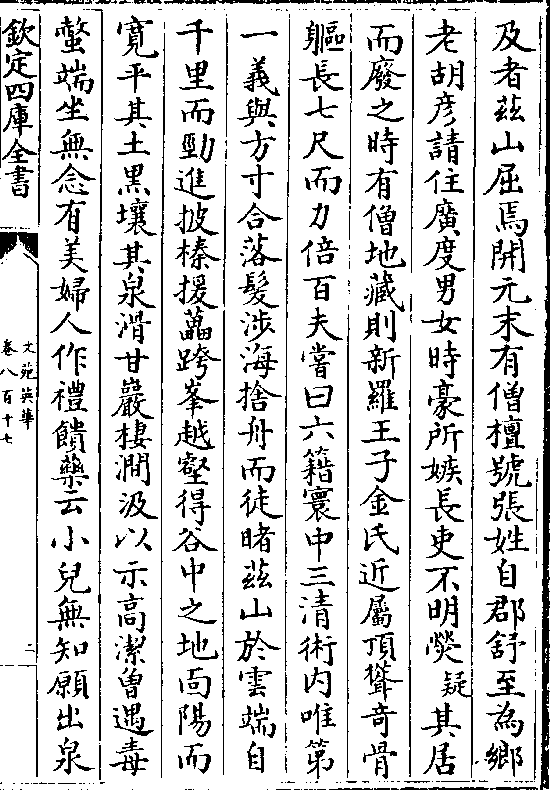 及者茲山屈焉開元末有僧檀號張姓自郡舒至為鄉
老胡彦請住廣度男女時豪所嫉長吏不明熒疑其居
而廢之時有僧地藏則新羅王子金氏近屬頂聳奇骨
軀長七尺而力倍百夫嘗曰六籍寰中三清術内唯第
一義與方寸合落髮涉海捨舟而徒睹茲山於雲端自
千里而勁進披榛援藟跨峯越壑得谷中之地面陽而
寛平其土黒壤其泉滑甘巖棲澗汲以示高潔曾遇毒
螫端坐無念有美婦人作禮饋藥云小兒無知願出泉
欽定四庫全書
文苑英華
卷八百十七
二